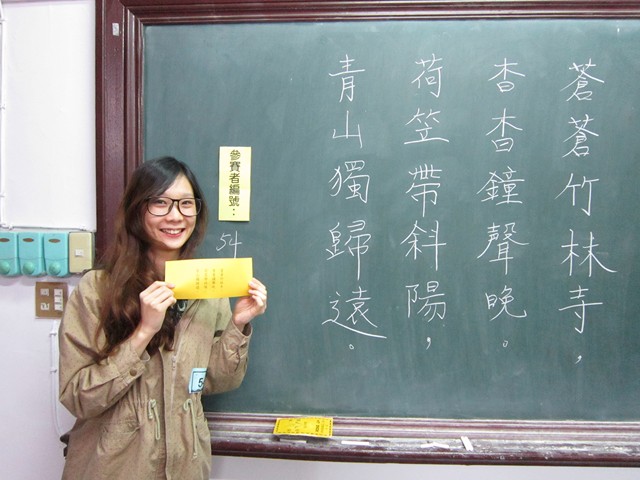 蒼蒼竹林寺，
杳杳鐘聲晚。
荷笠帶斜陽，
青山獨歸遠。
參賽者編號：
54
5